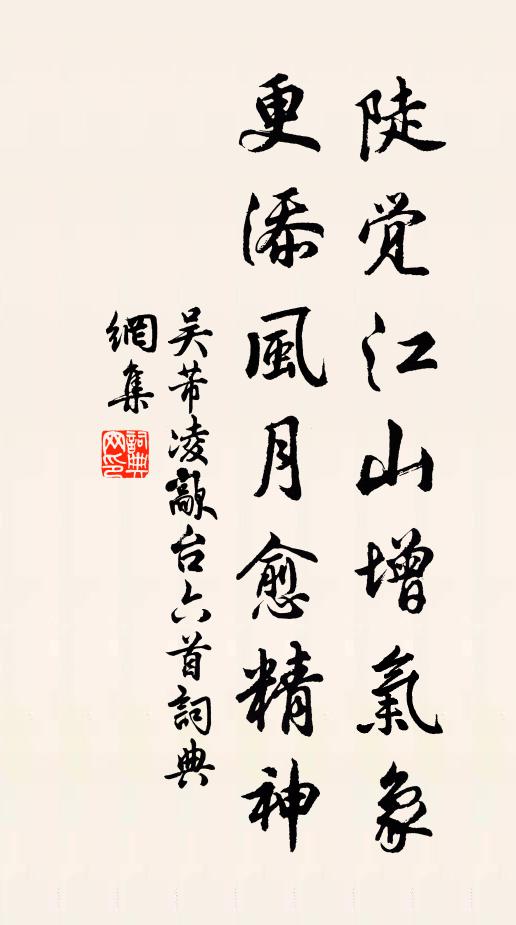 陡覚江山增氣象
更添風月愈精神
吴芾凌歊台六首詞典
網集
詞典網印